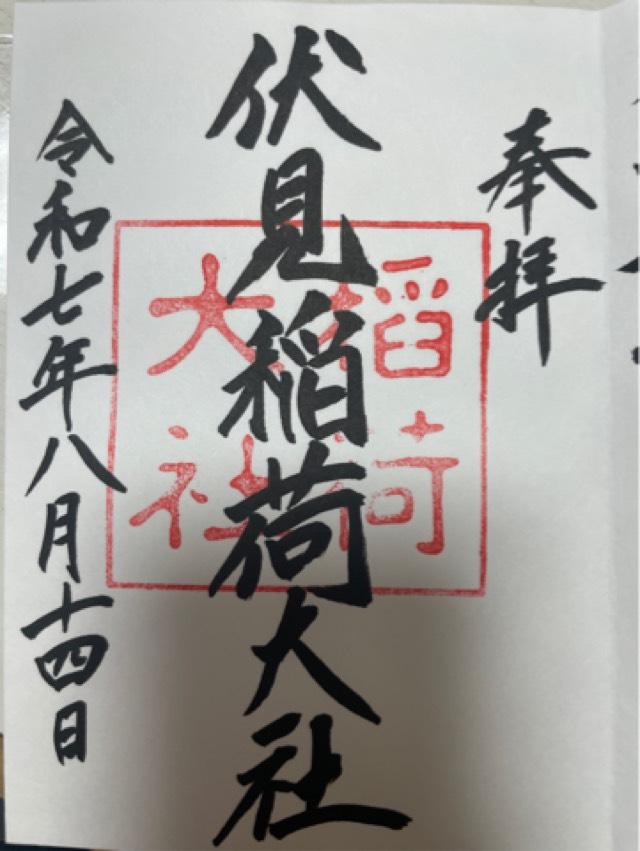 奉拝
伏見稲荷大社
稲荷
大社
令和七年八月十四日